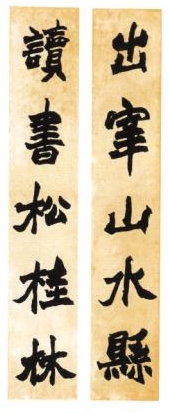 出宰山水縣
讀書松桂林